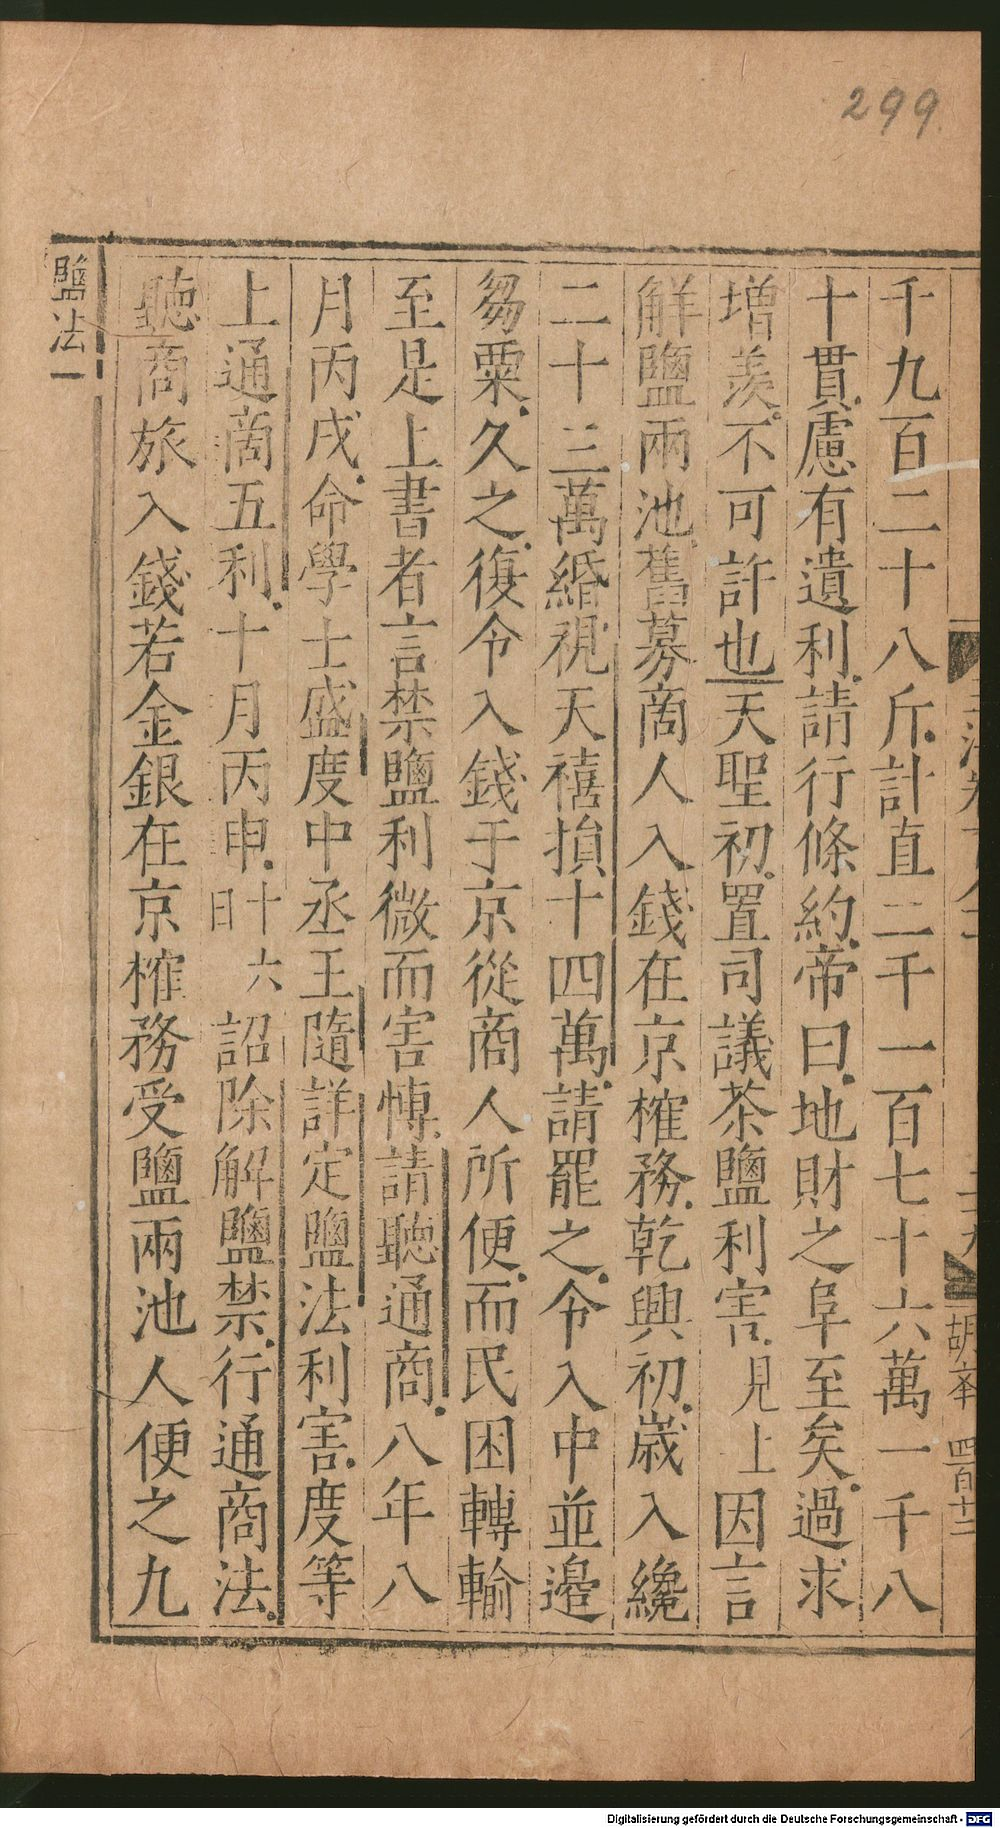 299
千九百二十八斤計直二千一百七十六萬一千八
十貫慮有遺利請行條約帝曰地財之阜至矣過求
增羨不可許也天聖初置司議茶鹽利害見上因言
解鹽兩池舊募商人入錢在京榷務乾興初歲入纔
二十三萬緡視天禧損十四萬請罷之令入中並邉
芻粟久之復令入錢于京從商人所便而民困轉輸
至是上書者言禁鹽利微而害慱請聽通商八年八
月丙戌命學士盛度中丞王隨詳定鹽法利害度等
上通商五利十月丙申十六日詔除解鹽禁行通商法
聽商旅入錢若金銀在京榷務受鹽兩池人便之九
鹽法一
胡𡩋 四百十二
Digitalisierung gefördert durch die Deutsche Forschungsgemeinschaft - DFG